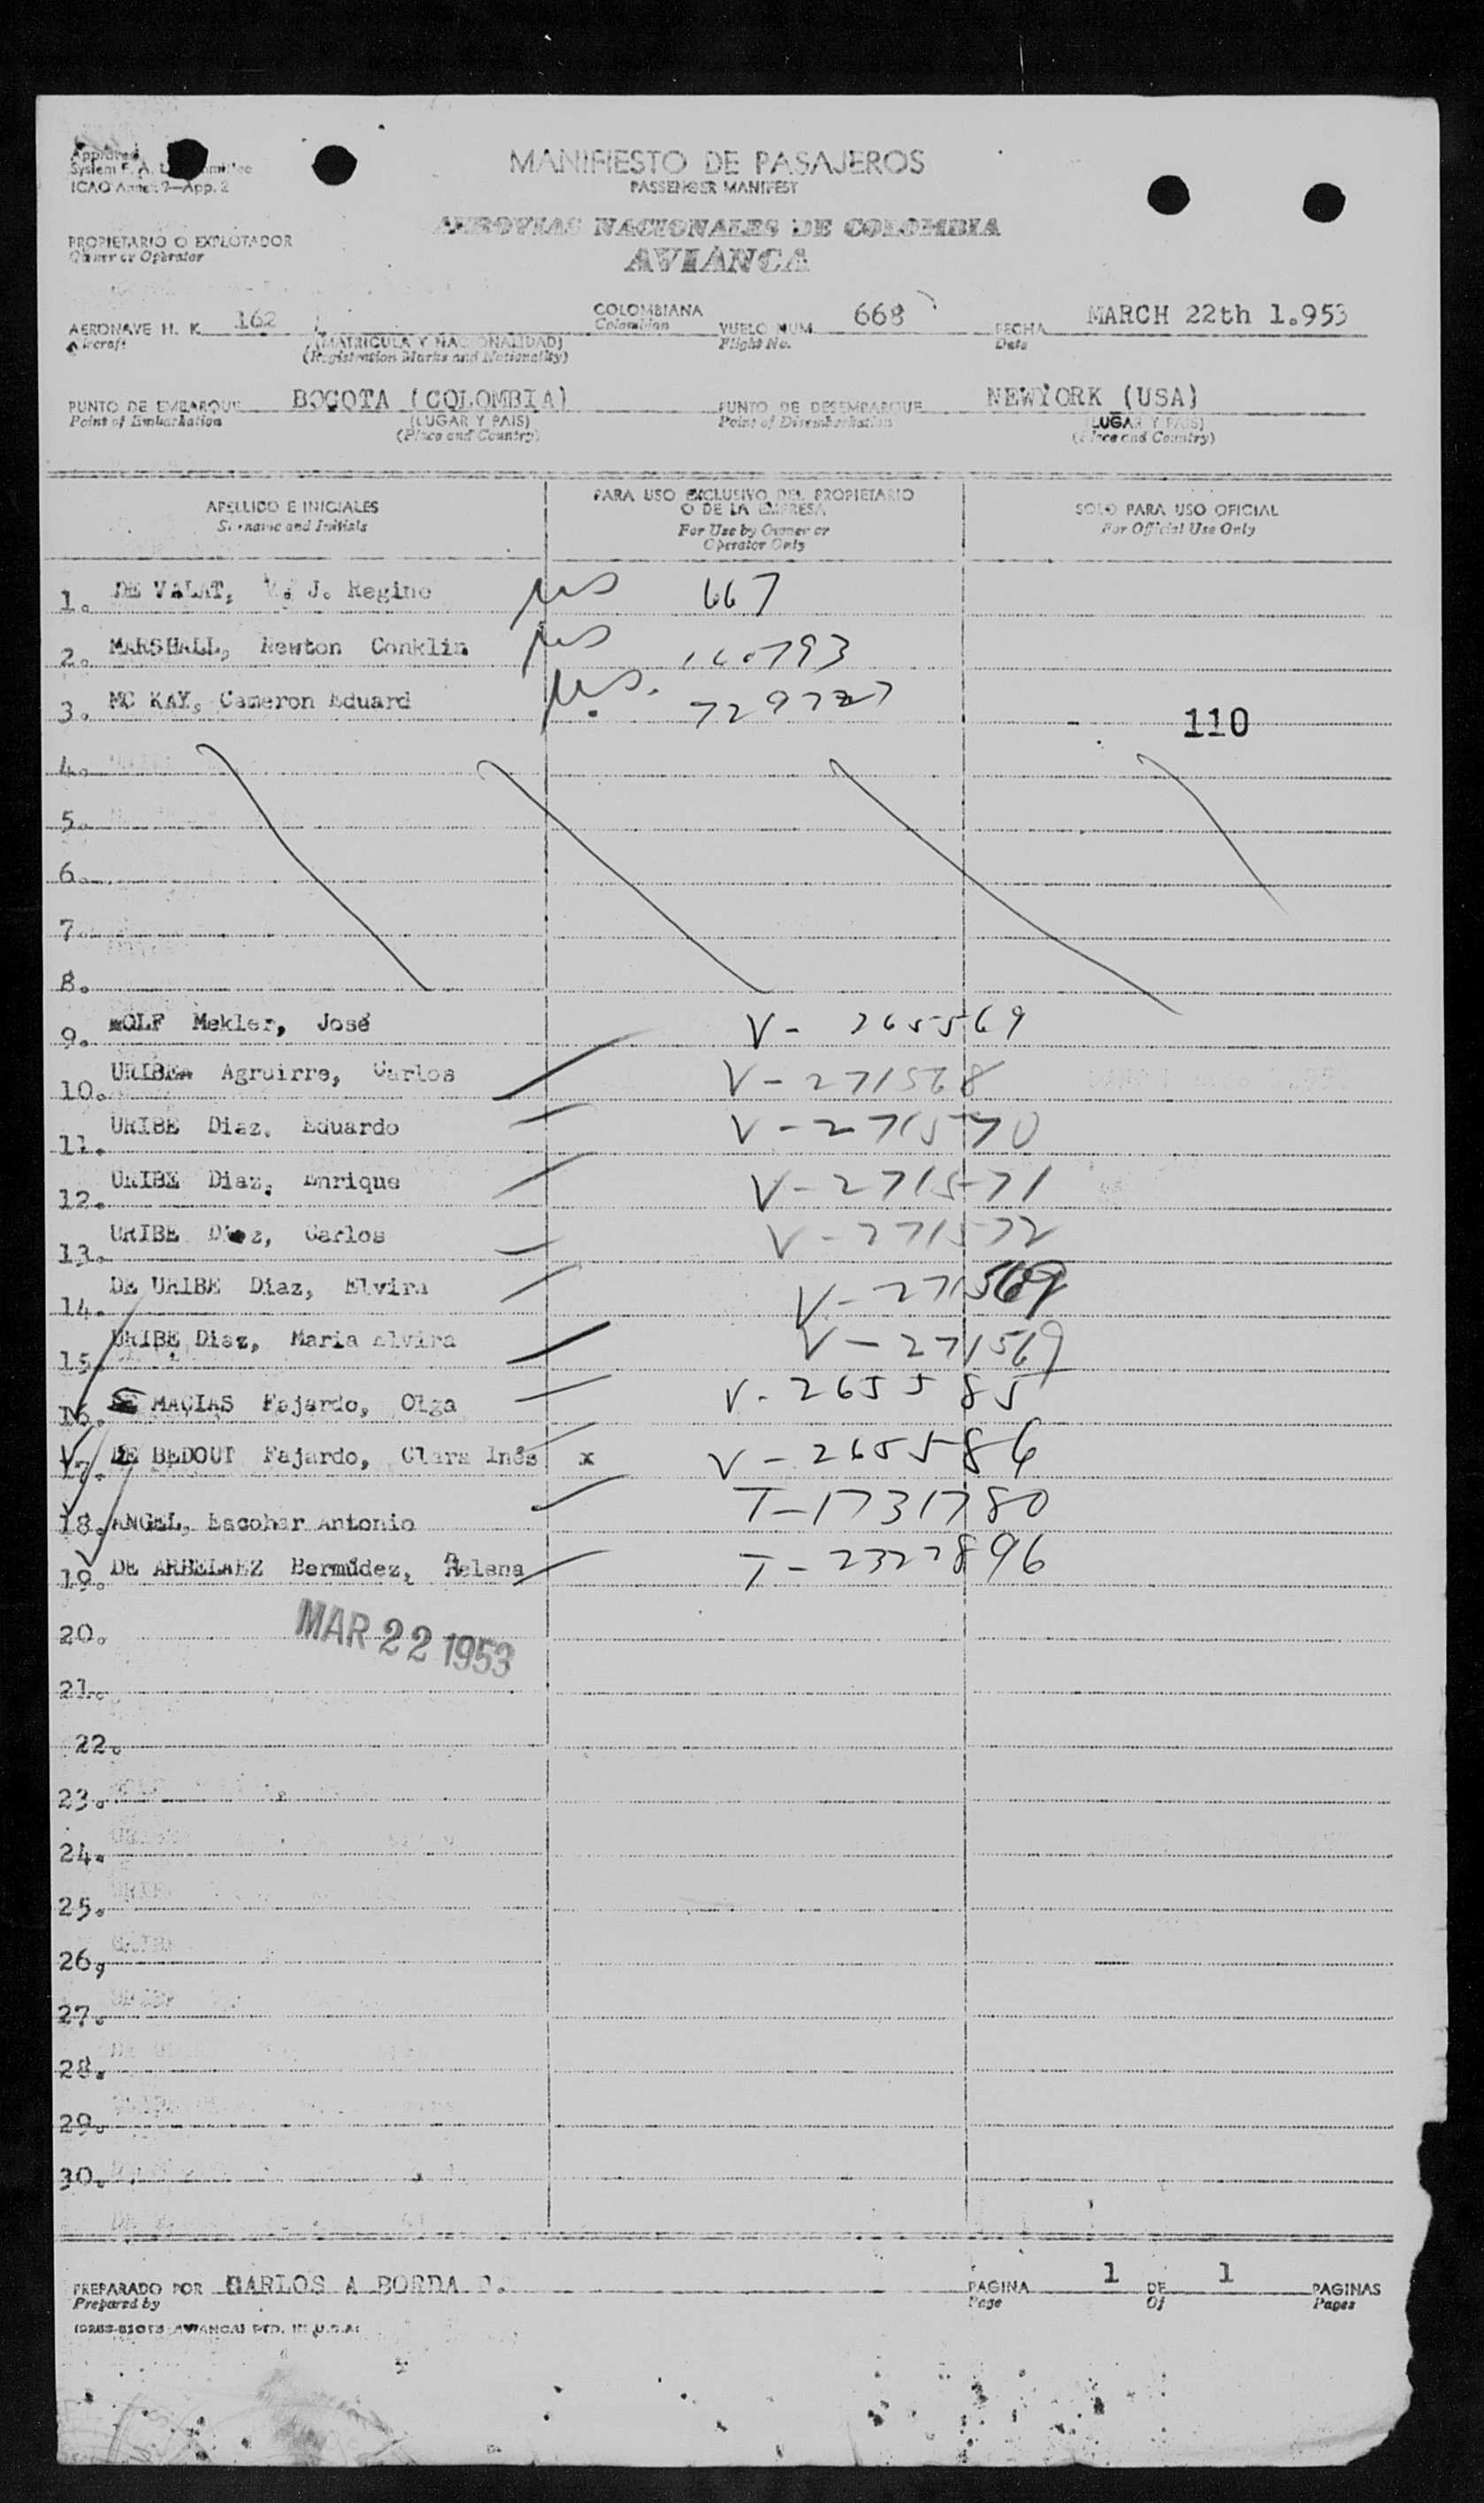 MANIFIESTO DE PASAJEROS
PASSENGER MANIFEST
ICAO Annex 9—App. 2
AEROVIAS NACIONALES DE COLOMBIA
AVIANCA
PROPIETARIO O EXPLOTADOR
Owner or Operator
AERONAVE H. K. 162 COLOMBIANA VUELO NUM. 668 FECHA MARCH 22th 1.953
Aircraft (MATRICULA Y NACIONALIDAD) Colombian Flight No. Date
(Registration Marks and Nationality)
PUNTO DE EMBARQUE BOGOTA (COLOMBIA) PUNTO DE DESEMBARQUE NEWYORK (USA)
Point of Embarkation (LUGAR Y PAIS) Point of Disembarkation (LUGAR Y PAIS)
(Place and Country) (Place and Country)
APELLIDO E INICIALES
Surname and Initials
PARA USO EXCLUSIVO DEL PROPIETARIO
O DE LA EMPRESA
For Use by Owner or
Operator Only
SOLO PARA USO OFICIAL
For Official Use Only
1. DE VALAT, V. J. Regine 667
2. MARSHALL, Newton Conklin
3. MC KAY, Cameron Eduard 110
4.
5.
6.
7.
8.
9. WOLF Mekler, José V- 265569
10. URIBE Agruirre, Carlos V-271568
11. URIBE Diaz, Eduardo V-271570
12. URIBE Diaz, Enrique V-271571
13. URIBE Diaz, Carlos V-271572
14. DE URIBE Diaz, Elvira V-271569
15. URIBE Diaz, Maria Elvira V-271569
16. DE MACIAS Fajardo, Olga V-265585
17. DE BEDOUT Fajardo, Clara Inés x V-265586
18. ANGEL, Escobar Antonio T-1731780
19. DE ARBELAEZ Bermúdez, Helena T-2327896
20. MAR 22 1953
21.
22.
23.
24.
25.
26,
27.
28.
29.
30.
PREPARADO POR CARLOS A BORDA PAGINA 1 DE 1 PAGINAS
Prepared by Page Of Pages